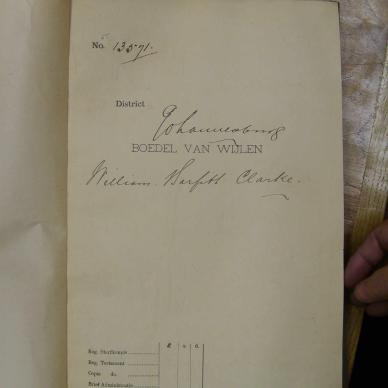 No. 13571.
District Johannesburg
BOEDEL VAN WIJLEN
William Clarke.
£ s. d.
Reg. Sterfkennis
Reg. Testament
Copie do.
Brief Administratie